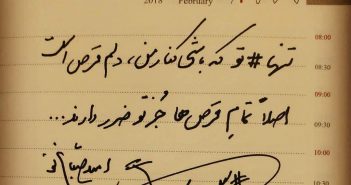 2018 February
08:00
تنها #تو که باشی کنار من، دلم قرص است
08:30
09:00
اصلاً تمامِ قرص‌ها جُز تو ضرر دارند...
09:30
10:00
امید صباغ نو
10:30